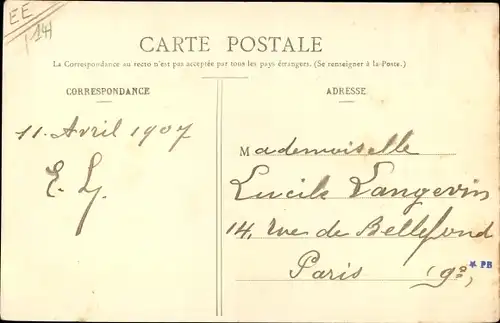 EE
141
CARTE POSTALE
La Correspondance au recto n'est pas acceptée par tous les pays étrangers. (Se renseigner à la Poste.)
CORRESPONDANCE
11 Avril 1907
E. L.
ADRESSE
Mademoiselle
Lucile Langevin
14, rue de Bellefond
Paris (9e)
* PB